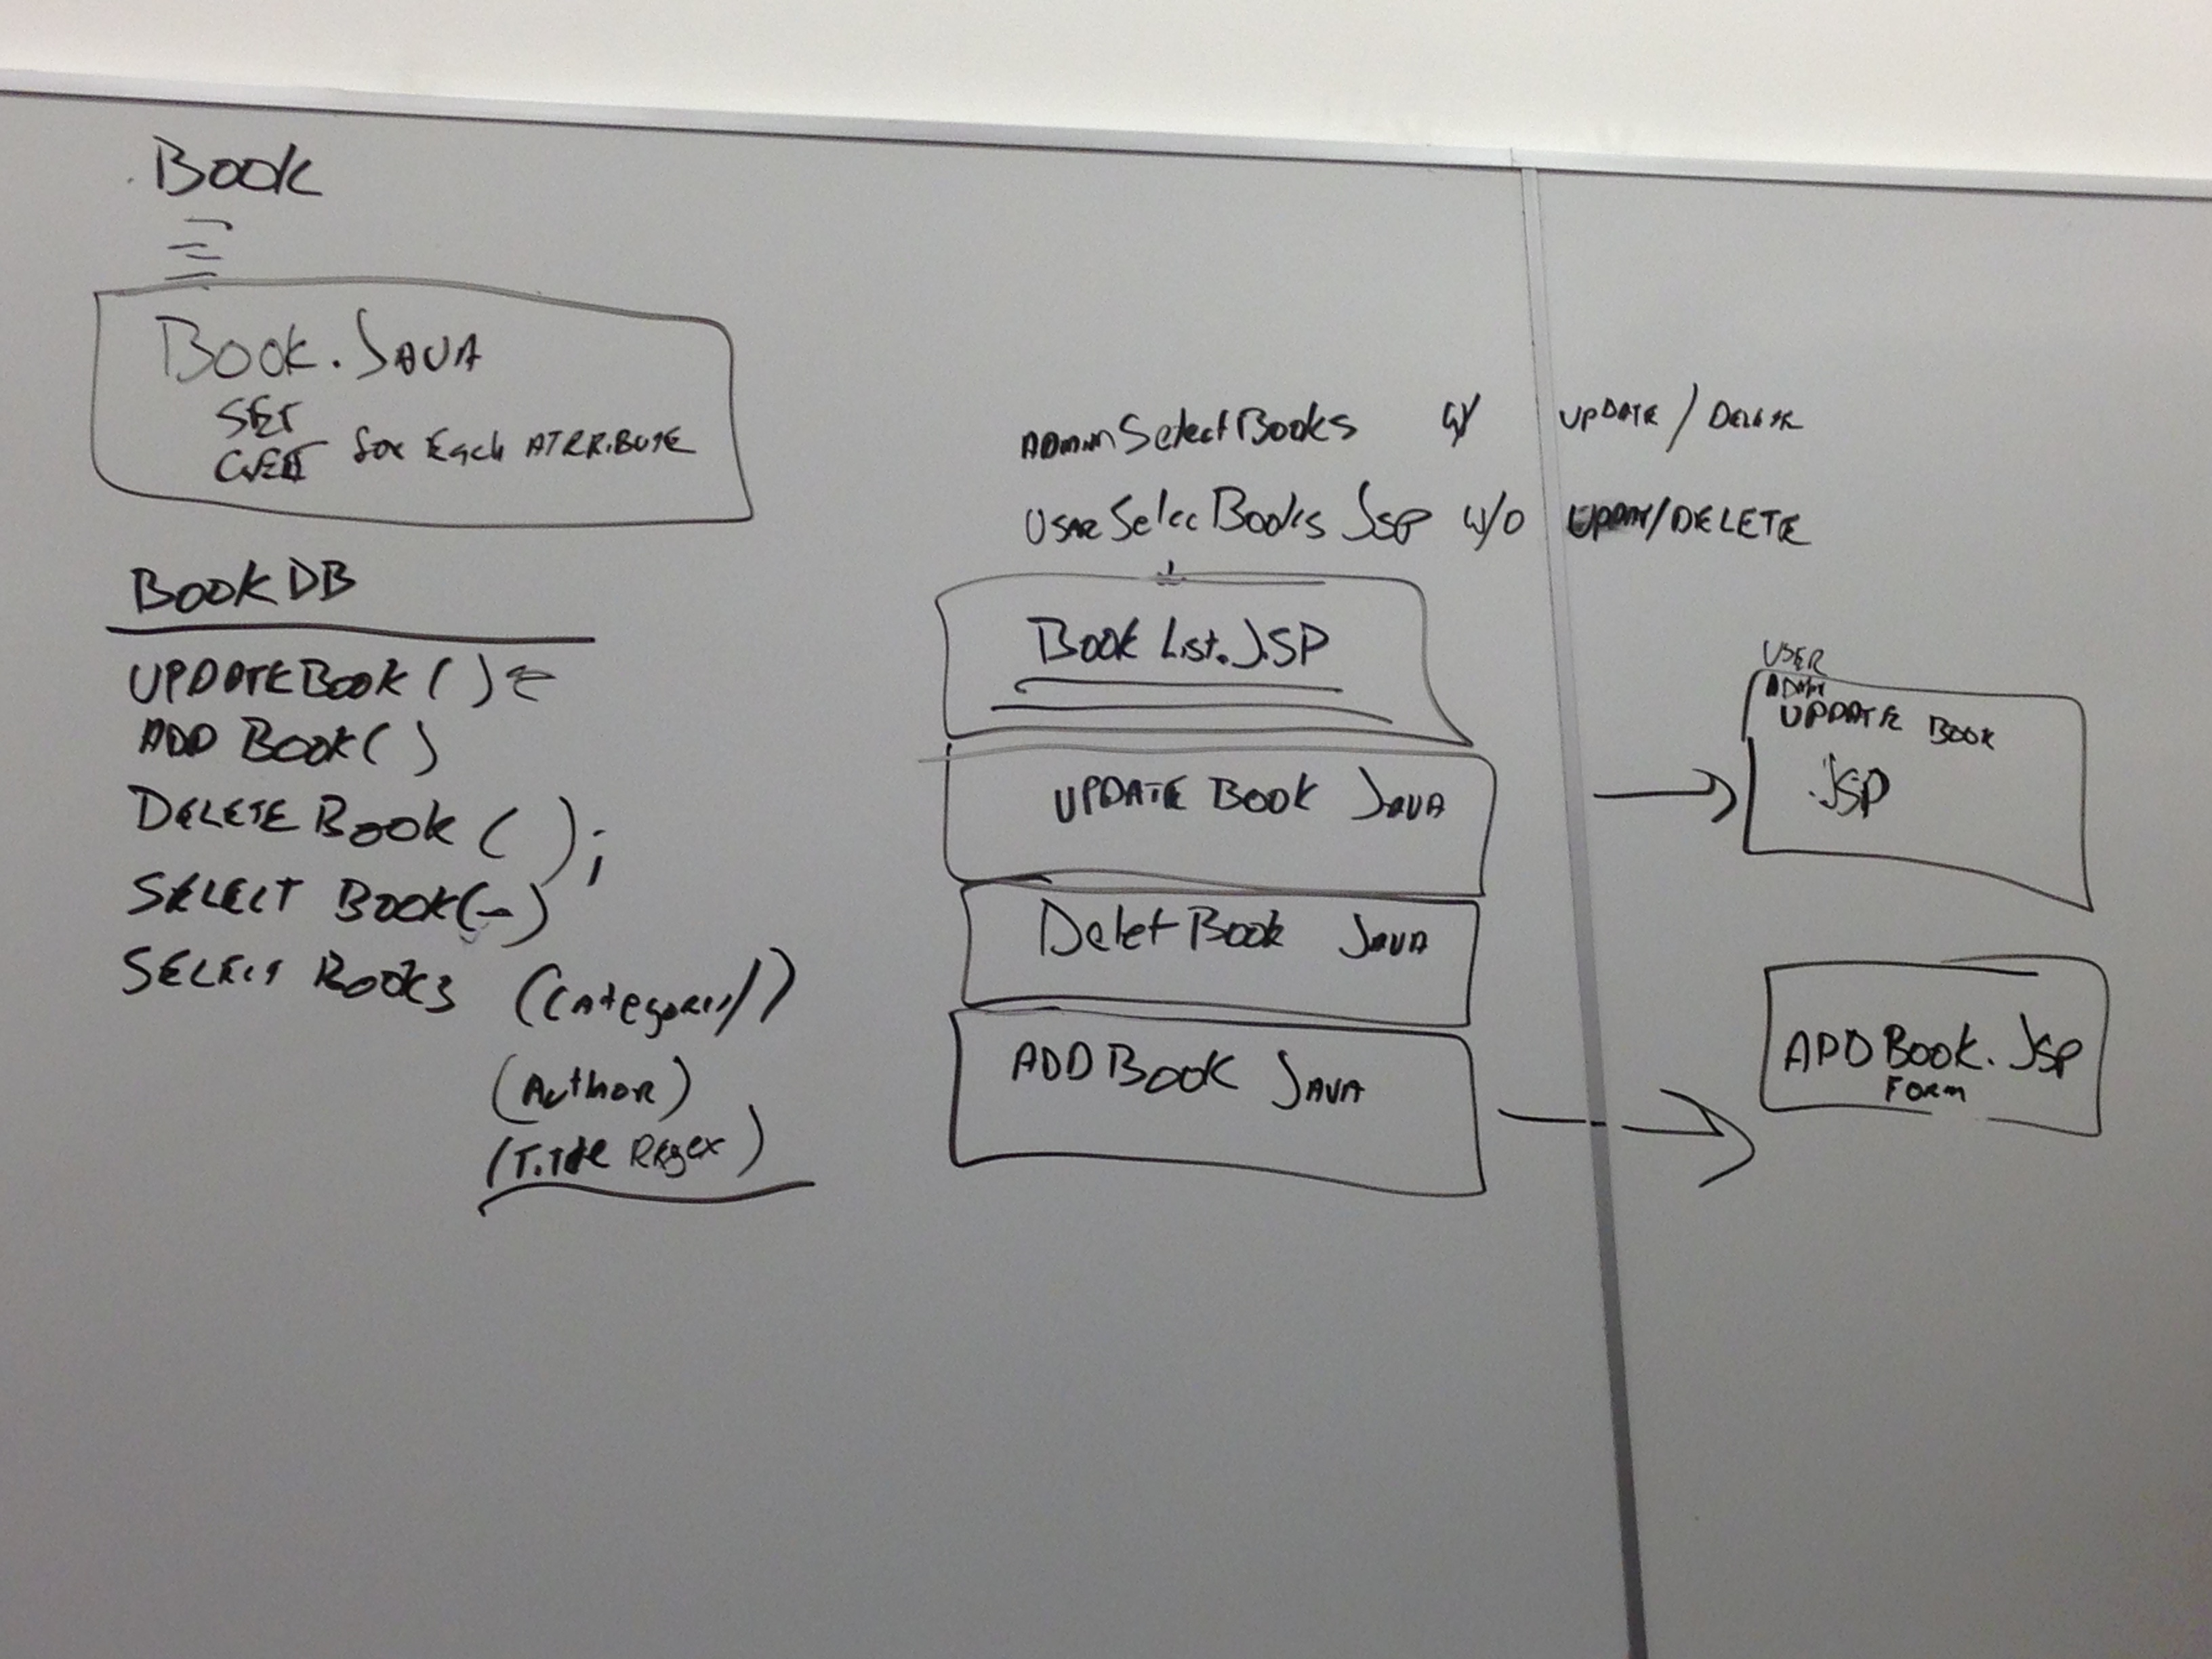 Book
Book.JAVA
SET
GET for Each ATRRIBUTE
BOOK DB
UPDATEBOOK ( )
ADD BOOK( )
DELETE BOOK ( );
SELECT BOOK(-)
SELECT BOOKS (Category)
(Author)
(Title Regex)
ADminSelectBooks w/ UPDATE / DELETE
USERSelecBooks JSP w/o /DELETE
Book List.JSP
UPDATE BOOK JAVA
DeletBook JAVA
ADDBOOK JAVA
USER
UPDATE BOOK
.JSP
ADDBook.JSP
Form